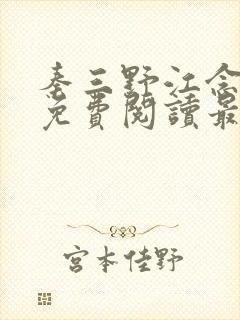 秦三野江念
免費閱讀最
宮本佳野